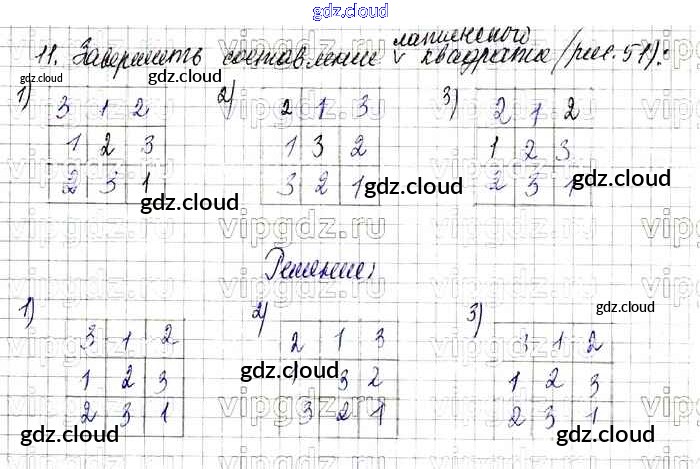 gdz.cloud
11. Завершить составление латинского квадрата (рис. 51):
gdz.cloud gdz.cloud gdz.cloud
1) 3 1 2 2) 2 1 3 3) 2 1 2
1 2 3 1 3 2 1 2 3
2 3 1 3 2 1 2 3 1
gdz.cloud gdz.cloud gdz.cloud
Решение:
1) 3 1 2 2) 2 1 3 3) 3 1 2
1 2 3 3 2 1 2 3
2 3 1 3 2 1 2 3 1
gdz.cloud gdz.cloud gdz.cloud
gdz.cloud gdz.cloud
vipgdz.ru